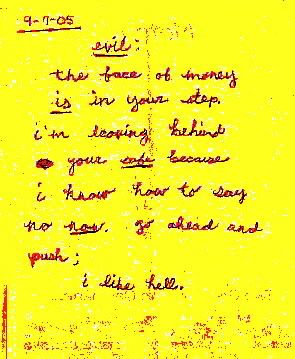 9-7-05
evil:
the face of money
is in your step.
i'm leaving behind
your because
i know how to say
no now. go ahead and
push;
i like hell.